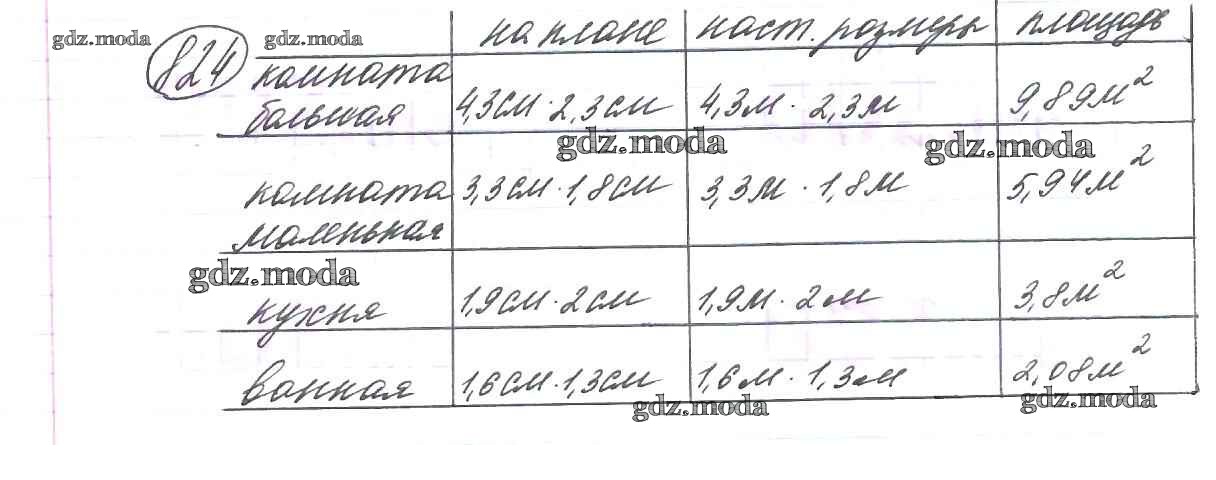 на плане наст. размеры площадь
gdz.moda 824 gdz.moda
комната
большая 4,3см · 2,3см 4,3м · 2,3м 9,89м²
gdz.moda gdz.moda
комната 3,3см · 1,8см 3,3м · 1,8м 5,94м²
маленькая
gdz.moda
кухня 1,9см · 2см 1,9м · 2м 3,8м²
ванная 1,6см · 1,3см 1,6м · 1,3м 2,08м²
gdz.moda gdz.moda